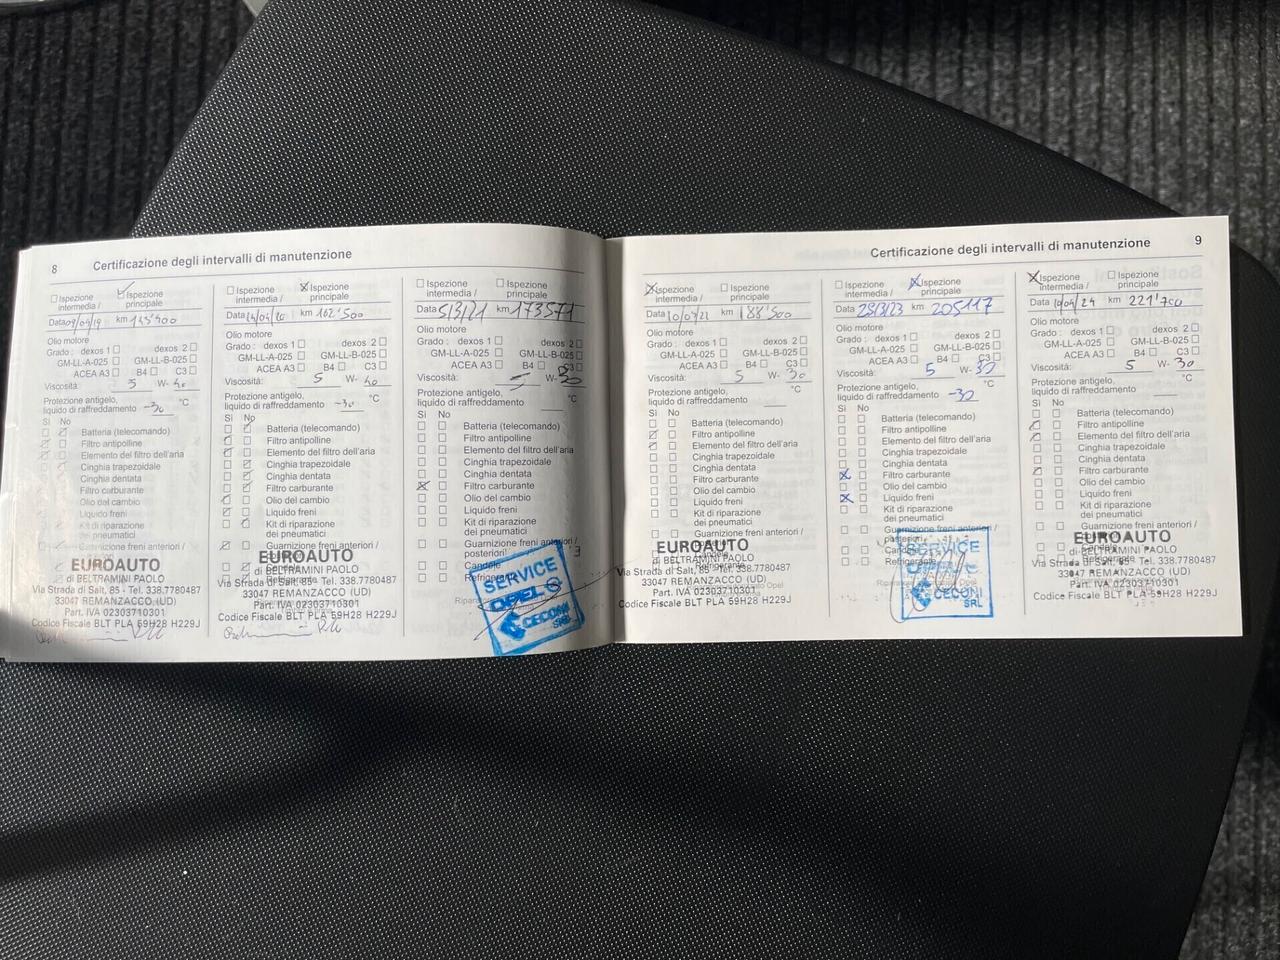 8 Certificazione degli intervalli di manutenzione
☐ Ispezione intermedia / ☑ Ispezione principale
Data 09/04/19 km
Olio motore
Grado: dexos 1 ☐ dexos 2 ☐
GM-LL-A-025 ☐ GM-LL-B-025 ☐
ACEA A3 ☐ B4 ☐ C3 ☐
Viscosità: 5 W- 40
Protezione antigelo, °C
liquido di raffreddamento -30
Sì No
Batteria (telecomando)
Filtro antipolline
Elemento del filtro dell'aria
Cinghia trapezoidale
Cinghia dentata
Filtro carburante
Olio del cambio
Liquido freni
Kit di riparazione
dei pneumatici
Guarnizione freni anteriori /
EUROAUTO
di BELTRAMINI PAOLO
Via Strada di Salt, 85 - Tel. 338.7780487
33047 REMANZACCO (UD)
Part. IVA 02303710301
Codice Fiscale BLT PLA 59H28 H229J
☐ Ispezione intermedia / ☒ Ispezione principale
Data km 162'500
Olio motore
Grado: dexos 1 ☐ dexos 2 ☐
GM-LL-A-025 ☐ GM-LL-B-025 ☐
ACEA A3 ☐ B4 ☐ C3 ☐
Viscosità: 5 W- 40
Protezione antigelo, °C
liquido di raffreddamento -30
Sì No
Batteria (telecomando)
Filtro antipolline
Elemento del filtro dell'aria
Cinghia trapezoidale
Cinghia dentata
Filtro carburante
Olio del cambio
Liquido freni
Kit di riparazione
dei pneumatici
Guarnizione freni anteriori /
EUROAUTO
di BELTRAMINI PAOLO
Via Strada di Salt, 85 - Tel. 338.7780487
33047 REMANZACCO (UD)
Part. IVA 02303710301
Codice Fiscale BLT PLA 59H28 H229J
☐ Ispezione intermedia / ☐ Ispezione principale
Data 5/3/21 km 173571
Olio motore
Grado: dexos 1 ☐ dexos 2 ☐
GM-LL-A-025 ☐ GM-LL-B-025 ☐
ACEA A3 ☐ B4 ☐ C3 ☐
Viscosità: 5 W- 30
Protezione antigelo, °C
liquido di raffreddamento
Sì No
Batteria (telecomando)
Filtro antipolline
Elemento del filtro dell'aria
Cinghia trapezoidale
Cinghia dentata
Filtro carburante
Olio del cambio
Liquido freni
Kit di riparazione
dei pneumatici
Guarnizione freni anteriori /
posteriori
Candele
Refrigerante
SERVICE
OPEL
CECONI
SRL
Certificazione degli intervalli di manutenzione 9
☒ Ispezione intermedia / ☐ Ispezione principale
Data km 188'500
Olio motore
Grado: dexos 1 ☐ dexos 2 ☐
GM-LL-A-025 ☐ GM-LL-B-025 ☐
ACEA A3 ☐ B4 ☐ C3 ☐
Viscosità: 5 W- 30
Protezione antigelo, °C
liquido di raffreddamento
Sì No
Batteria (telecomando)
Filtro antipolline
Elemento del filtro dell'aria
Cinghia trapezoidale
Cinghia dentata
Filtro carburante
Olio del cambio
Liquido freni
Kit di riparazione
dei pneumatici
EUROAUTO
di BELTRAMINI PAOLO
Via Strada di Salt, 85 - Tel. 338.7780487
33047 REMANZACCO (UD)
Part. IVA 02303710301
Codice Fiscale BLT PLA 59H28 H229J
☐ Ispezione intermedia / ☒ Ispezione principale
Data 28/3/23 km 205117
Olio motore
Grado: dexos 1 ☐ dexos 2 ☐
GM-LL-A-025 ☐ GM-LL-B-025 ☐
ACEA A3 ☐ B4 ☐ C3 ☐
Viscosità: 5 W- 30
Protezione antigelo, °C
liquido di raffreddamento -30
Sì No
Batteria (telecomando)
Filtro antipolline
Elemento del filtro dell'aria
Cinghia trapezoidale
Cinghia dentata
Filtro carburante
Olio del cambio
Liquido freni
Kit di riparazione
dei pneumatici
Guarnizione freni anteriori /
posteriori
Candele
Refrigerante
SERVICE
CECONI
SRL
☒ Ispezione intermedia / ☐ Ispezione principale
Data km 221'700
Olio motore
Grado: dexos 1 ☐ dexos 2 ☐
GM-LL-A-025 ☐ GM-LL-B-025 ☐
ACEA A3 ☐ B4 ☐ C3 ☐
Viscosità: 5 W- 30
Protezione antigelo, °C
liquido di raffreddamento
Sì No
Batteria (telecomando)
Filtro antipolline
Elemento del filtro dell'aria
Cinghia trapezoidale
Cinghia dentata
Filtro carburante
Olio del cambio
Liquido freni
Kit di riparazione
dei pneumatici
EUROAUTO
di BELTRAMINI PAOLO
Via Strada di Salt, 85 - Tel. 338.7780487
33047 REMANZACCO (UD)
Part. IVA 02303710301
Codice Fiscale BLT PLA 59H28 H229J